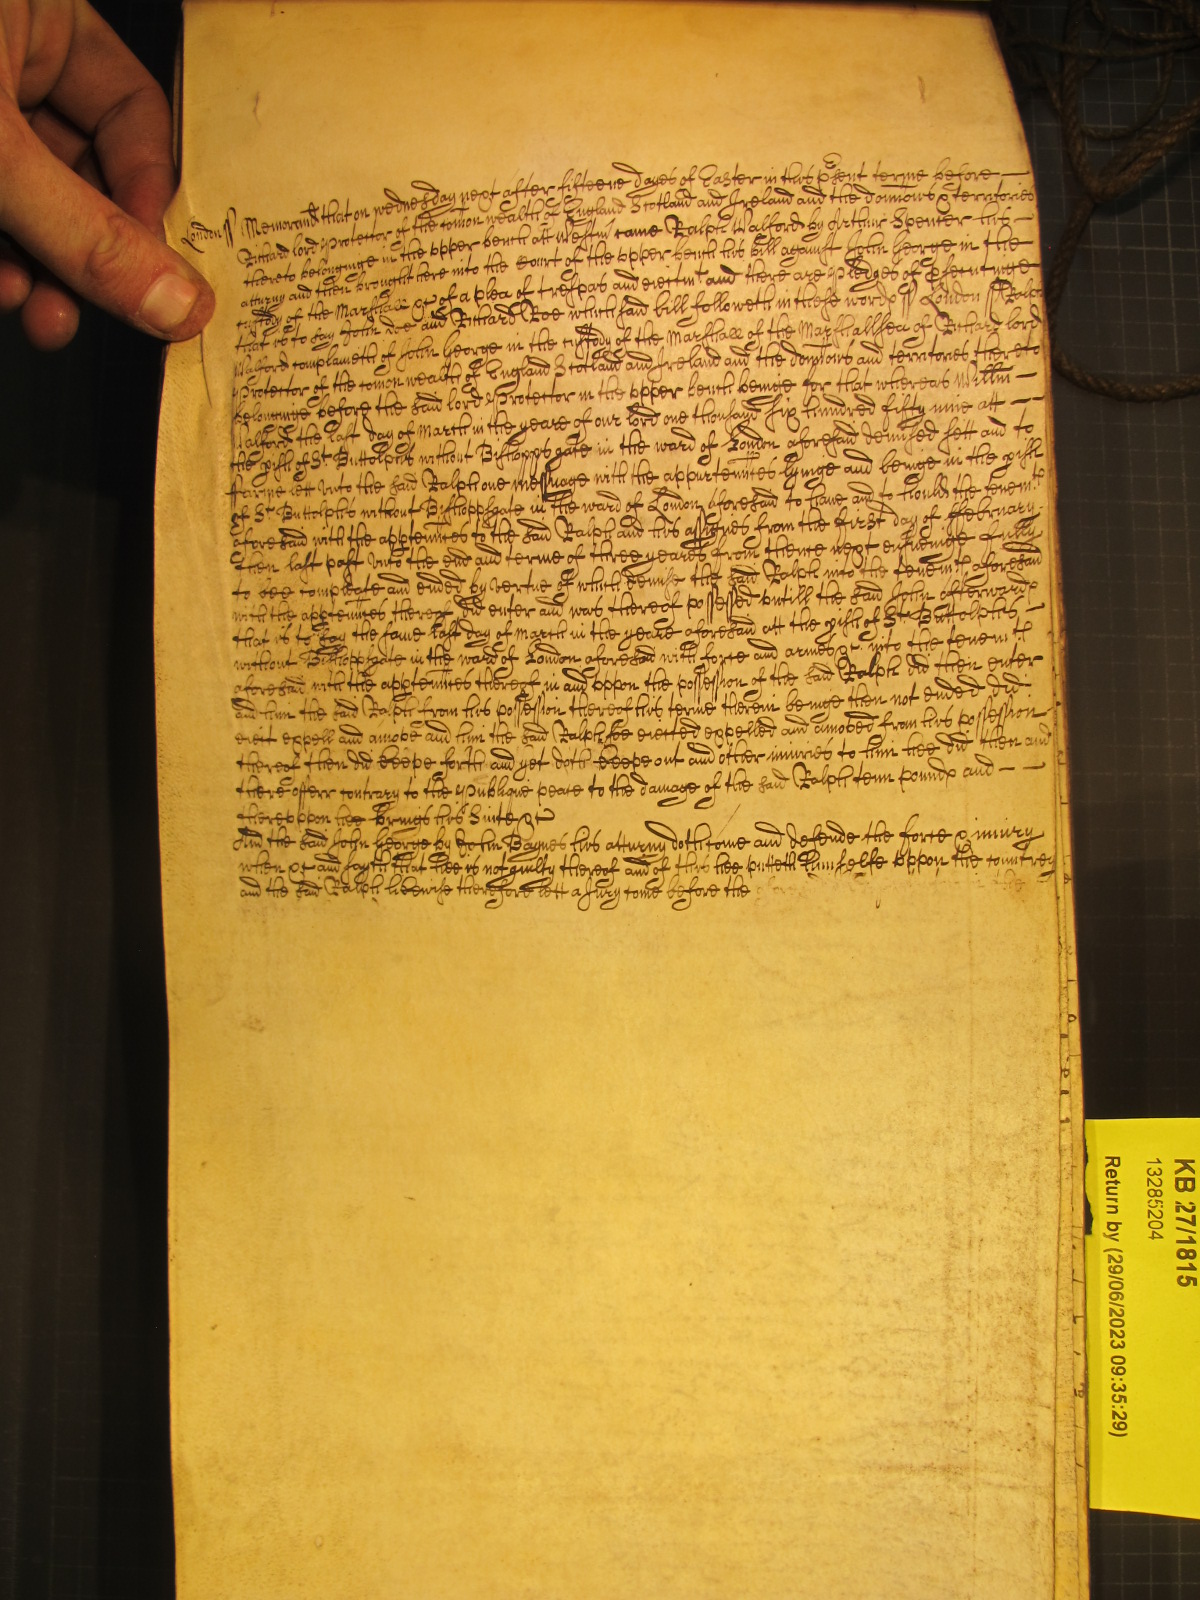 London ss Memorand that on wednesday next after fifteene dayes of Easter in this psent terme before
Richard lord Protector of the comon wealth of England Scotland and Ireland and the dominions & territories
thereto belonginge in the upper bench att Westm came Ralph Walford by Arthur Spencer his
atturny and then brought here into the Court of the upper bench his bill against John George in the
custody of the Marshall &c of a plea of trespas and eiectmt and there are Pledges of psecutinge
that is to say John Doe and Richard Roe which said bill followeth in these words ss London ss Ralph
Walford complaineth of John George in the custody of the Marshall of the Marshallsea of Richard lord
Protector of the comon wealth of England Scotland and Ireland and the dominions and territories thereto
belonginge before the said lord Protector in the upper bench beinge for that whereas Willm
Walford the last day of March in the yeare of our lord one thousand six hundred fifty nine att
the pish of St Buttolphs without Bishoppsgate in the ward of London aforesaid demised sett and to
ffarme lett unto the said Ralph one messuage with the appurtennces lyinge and beinge in the pish
of St Buttolphs without Bishoppsgate in the ward of London aforesaid to have and to hould the tenemt
aforesaid with the apptennces to the said Ralph and his assignes from the first day of ffebruary
then last past unto the end and terme of three yeares from thence next ensueinge fully
to bee compleate and ended by vertue of which demise the said Ralph into the tenemt aforesaid
with the apptennces thereof did enter and was thereof possessed untill the said John afterwards
that is to say the same last day of March in the yeare aforesaid att the pish of St Buttolphes
without Bishoppsgate in the ward of London aforesaid with force and armes &c into the tenemt
aforesaid with the apptennces thereof in and uppon the possession of the said Ralph did then enter
and him the said Ralph from his possession thereof his terme therein beinge then not ended did
eiect expell and amove and him the said Ralph soe eiected expelled and amoved from his possession
thereof then did keepe forth and yet doth keepe out and other iniuries to him hee did then and
there offerr contrary to the Publique peace to the damage of the said Ralph tenn pounds and
thereuppon hee brings his suite &c
And the said John George by John Baynes his atturny doth come and defende the force & iniury
when &c and sayth that hee is not guilty thereof and of this hee putteth himselfe uppon the countrey
and the said Ralph likewise therefore lett a Jury come before the
KB 27/1815
13285204
Return by (29/06/2023 09:35:29)